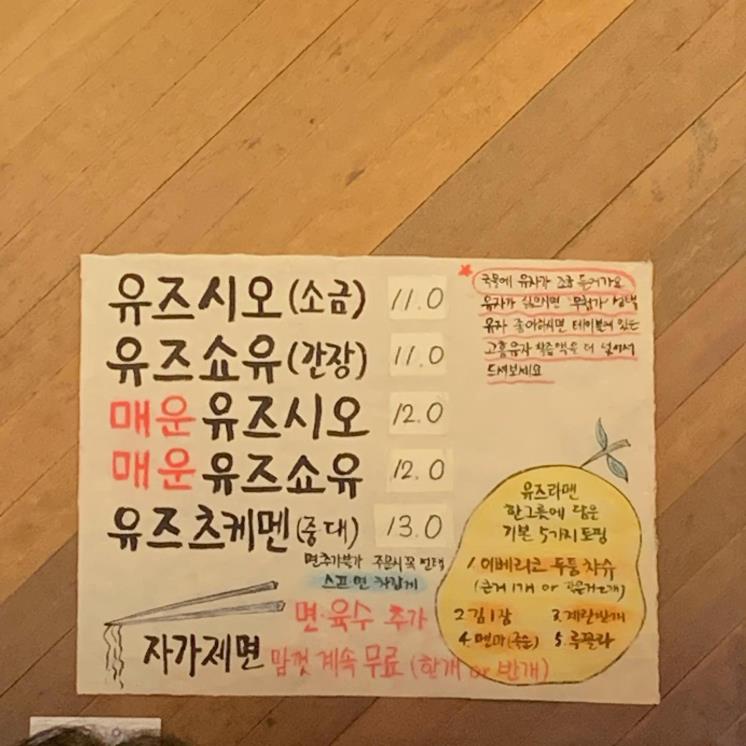 유즈시오(소금) 11.0
유즈쇼유(간장) 11.0
매운 유즈시오 12.0
매운 유즈쇼유 12.0
유즈츠케멘(중대) 13.0
면추가불가 주문시 꼭 선택
스프·면 차갑게
면·육수 추가
자가제면 맘껏 계속 무료 (한개 or 반개)
국물에 유자가 조금 들어가요
유자가 싫으시면 무첨가 선택
유자 좋아하시면 테이블에 있는
고흥유자 착즙액을 더 넣어서
드셔보세요
유즈라멘
한그릇에 담은
기본 5가지 토핑
1. 이베리코 두툼 챠슈
(큰거 1개 or 작은거 2개)
2. 김 1장 3. 계란반개
4. 멘마(죽순) 5. 루꼴라